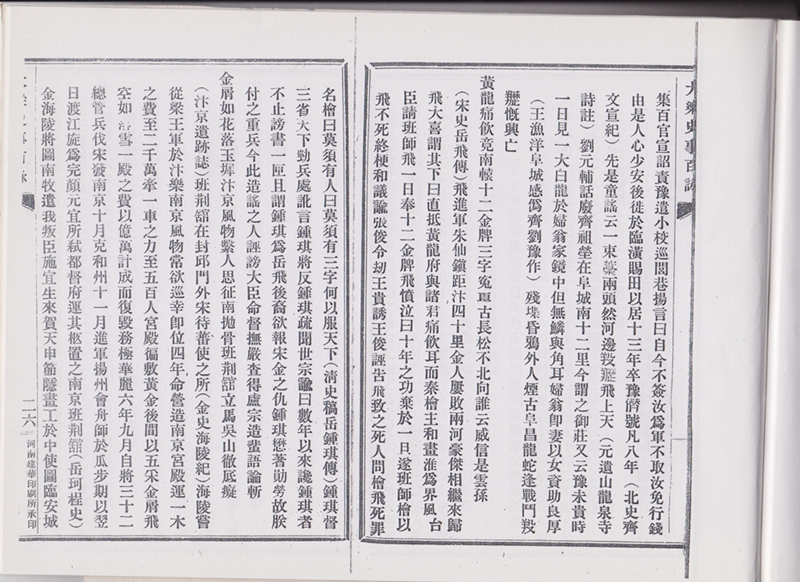 大梁史事百詠
集百官宣詔責豫遣小校巡閭巷揚言曰自今不簽汝為軍不取汝免行錢
由是人心少安後徙於臨潢賜田以居十三年卒豫僭號凡八年（北史齊
文宣紀）先是童謠云一束藁兩頭然河邊羖䍽飛上天（元遺山龍泉寺
詩註）劉元輔話廢齊祖塋在阜城南十二里今謂之御莊又云豫未貴時
一日見一大白龍於婦翁家鏡中但無鱗與角耳婦翁即妻以女資助良厚
（王漁洋阜城感偽齊劉豫作）殘堞昏鴉外人煙古阜昌龍蛇逢戰鬥羖
䍽慨興亡
黃龍痛飲竟南轅十二金牌三字寃古長松不北向誰云威信是雲孫
（宋史岳飛傳）飛進軍朱仙鎮距汴四十里金人屢敗兩河豪傑相繼來歸
飛大喜謂其下曰直抵黃龍府與諸君痛飲耳而秦檜主和畫淮為界風台
臣請班師飛一日奉十二金牌飛憤泣曰十年之功棄於一旦遂班師檜以
飛不死終梗和議諭張俊令劫王貴誘王俊誣告飛致之死人問檜飛死罪
名檜曰莫須有人曰莫須有三字何以服天下（清史稿岳鍾琪傳）鍾琪督
三省天下勁兵處訛言鍾琪將反鍾琪疏聞世宗諭曰數年以來讒鍾琪者
不止謗書一匣且謂鍾琪為岳飛後裔欲報宋金之仇鍾琪懋著勛勞故朕
付之重兵今此造謠之人誣謗大臣命督撫嚴查得盧宗造蜚語論斬
金屑如花落玉墀汴京風物繫人思征南拋骨班荆館立馬吳山徹底癡
（汴京遺跡誌）班荆館在封邱門外宋待蕃使之所（金史海陵紀）海陵嘗
從梁王軍於汴樂南京風物常欲巡幸即位四年命營造南京宮殿運一木
之費至二千萬牽一車之力至五百人宮殿徧敷黃金後間以五采金屑飛
空如落雪一殿之費以億萬計成而復毀務極華麗六年九月自將三十二
總管兵伐宋發南京十月克和州十一月進軍揚州會舟師於瓜步期以翌
日渡江旋為完顏元宜所弒都督府運其柩置之南京班荆館（岳珂桯史）
金海陵將圖南牧遣我叛臣施宜生來賀天申節隱畫工於中使圖臨安城
二六
河南建華印刷所承印